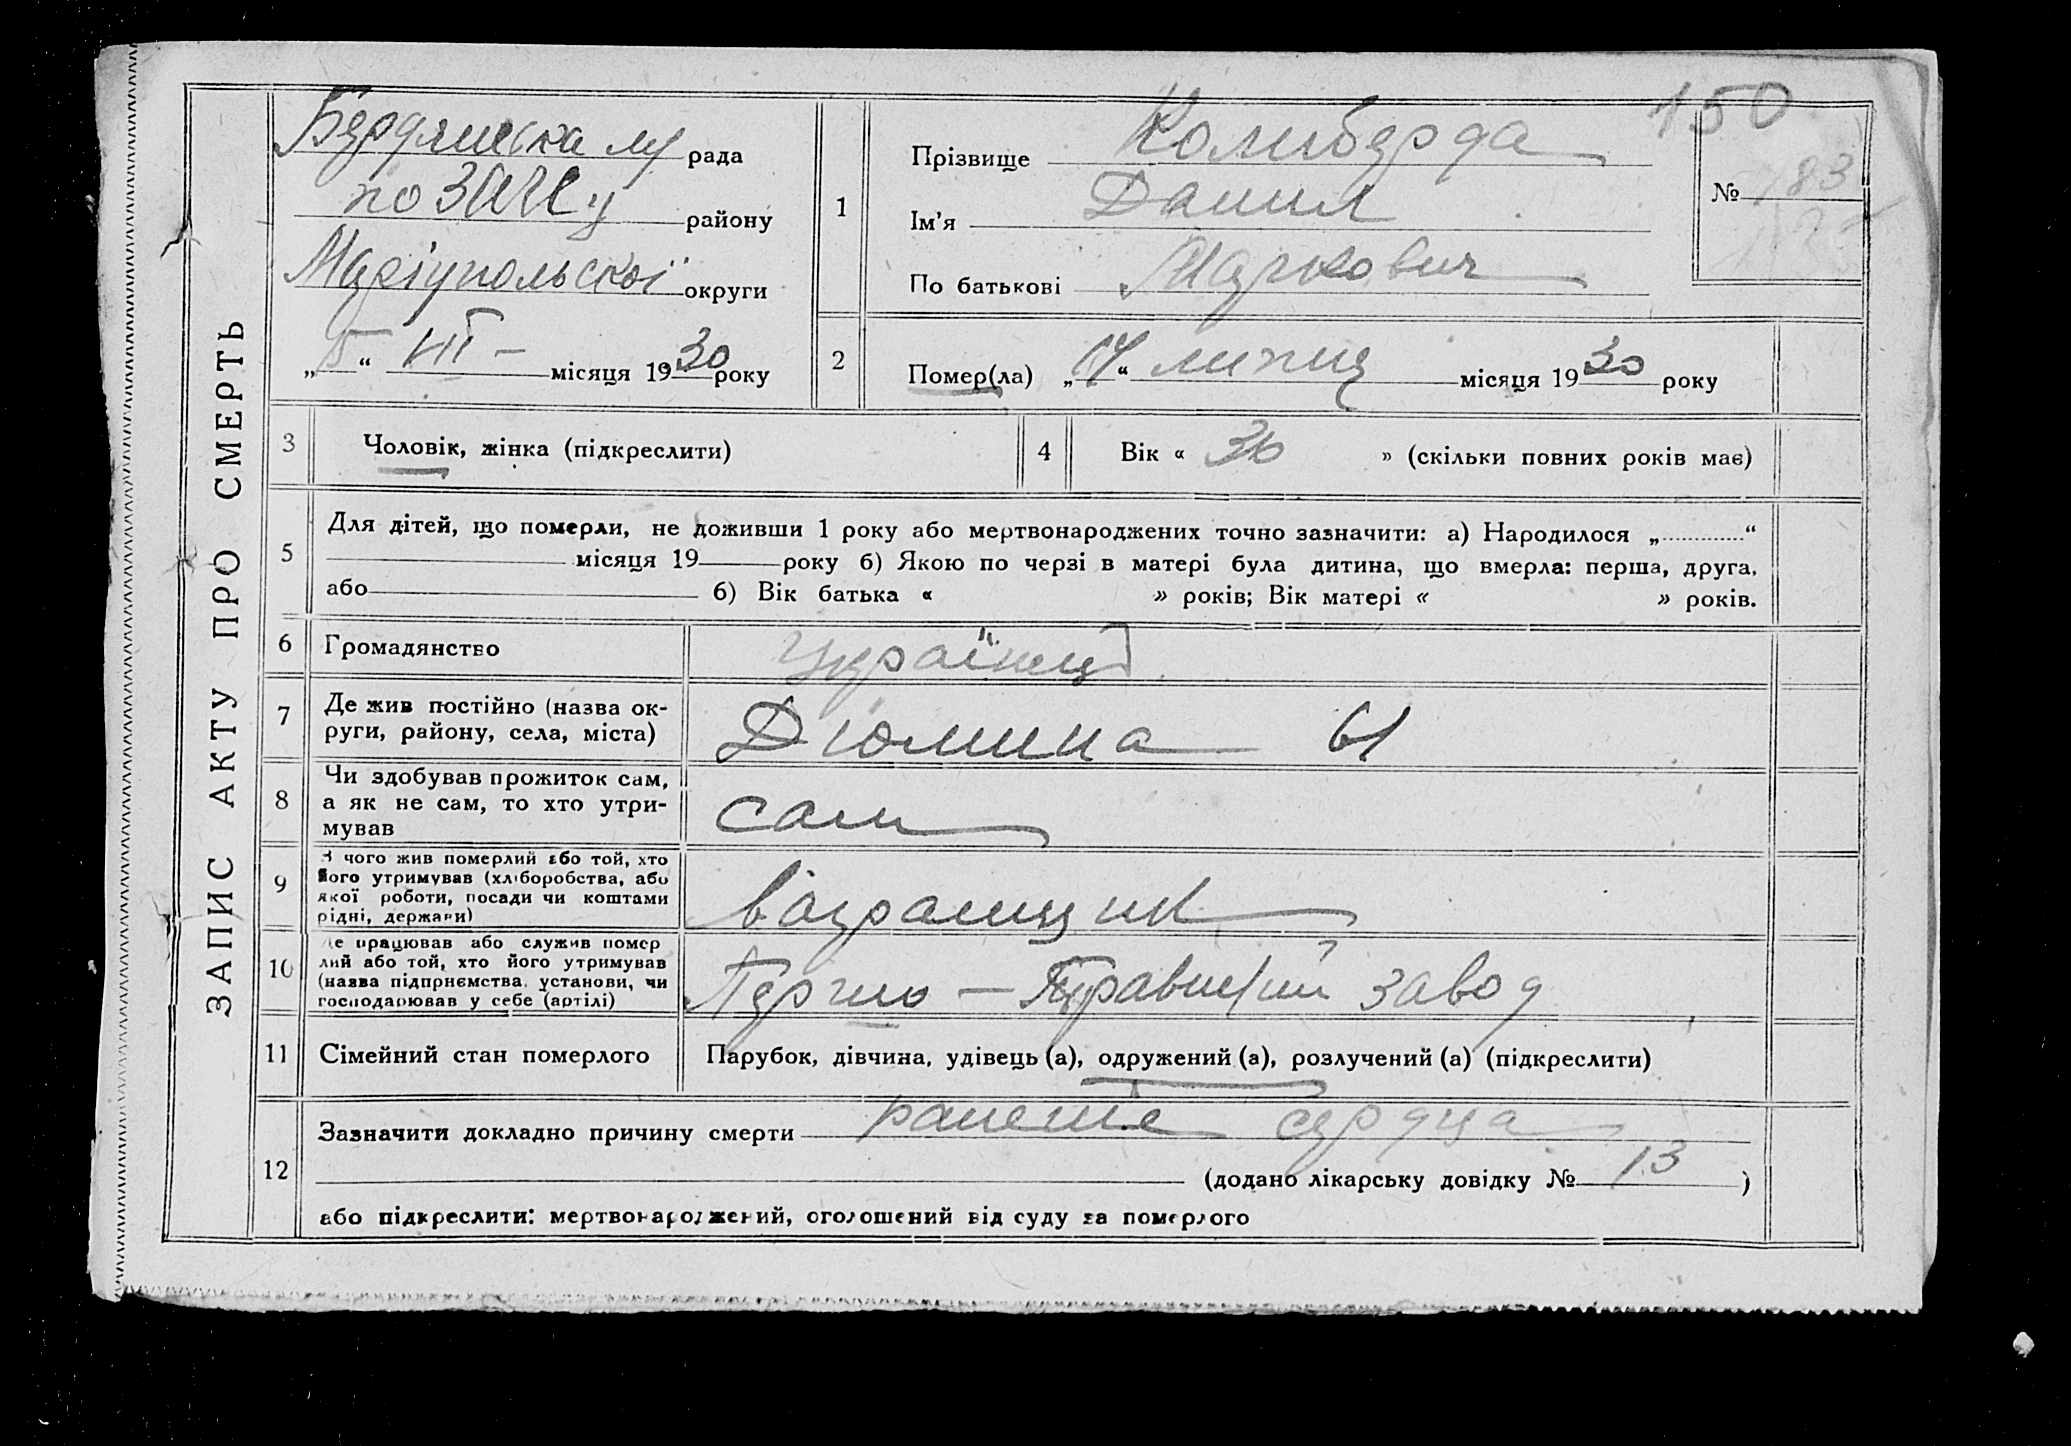 ЗАПИС АКТУ ПРО СМЕРТЬ
Бердянська м/ рада
по ЗАГСу району
Маріупольскої округи
„ “ VII – місяця 1930 року
150
№ 183
1 Прізвище Колиберда
Ім'я Данил
По батькові Маркович
2 Помер(ла) „14“ липця місяця 1930 року
3 Чоловік, жінка (підкреслити)
4 Вік « 36 » (скільки повних років має)
5 Для дітей, що померли, не доживши 1 року або мертвонароджених точно зазначити: а) Народилося „ “
місяця 19 року б) Якою по черзі в матері була дитина, що вмерла: перша, друга,
або б) Вік батька « » років; Вік матері « » років.
6 Громадянство українець
7 Де жив постійно (назва ок-
руги, району, села, міста) Дюмина 61
8 Чи здобував прожиток сам,
а як не сам, то хто утри-
мував сам
9 З чого жив померлий або той, хто
його утримував (хліборобства, або
якої роботи, посади чи коштами
рідні, держави) вагранщик
10 Де працював або служив помер
лий або той, хто його утримував
(назва підприємства, установи, чи
господарював у себе (артілі) Першо – завод
11 Сімейний стан померлого Парубок, дівчина, удівець (а), одружений (а), розлучений (а) (підкреслити)
12 Зазначити докладно причину смерти ранение сердца
(додано лікарську довідку № 13 )
або підкреслити: мертвонароджений, оголошений від суду за померлого